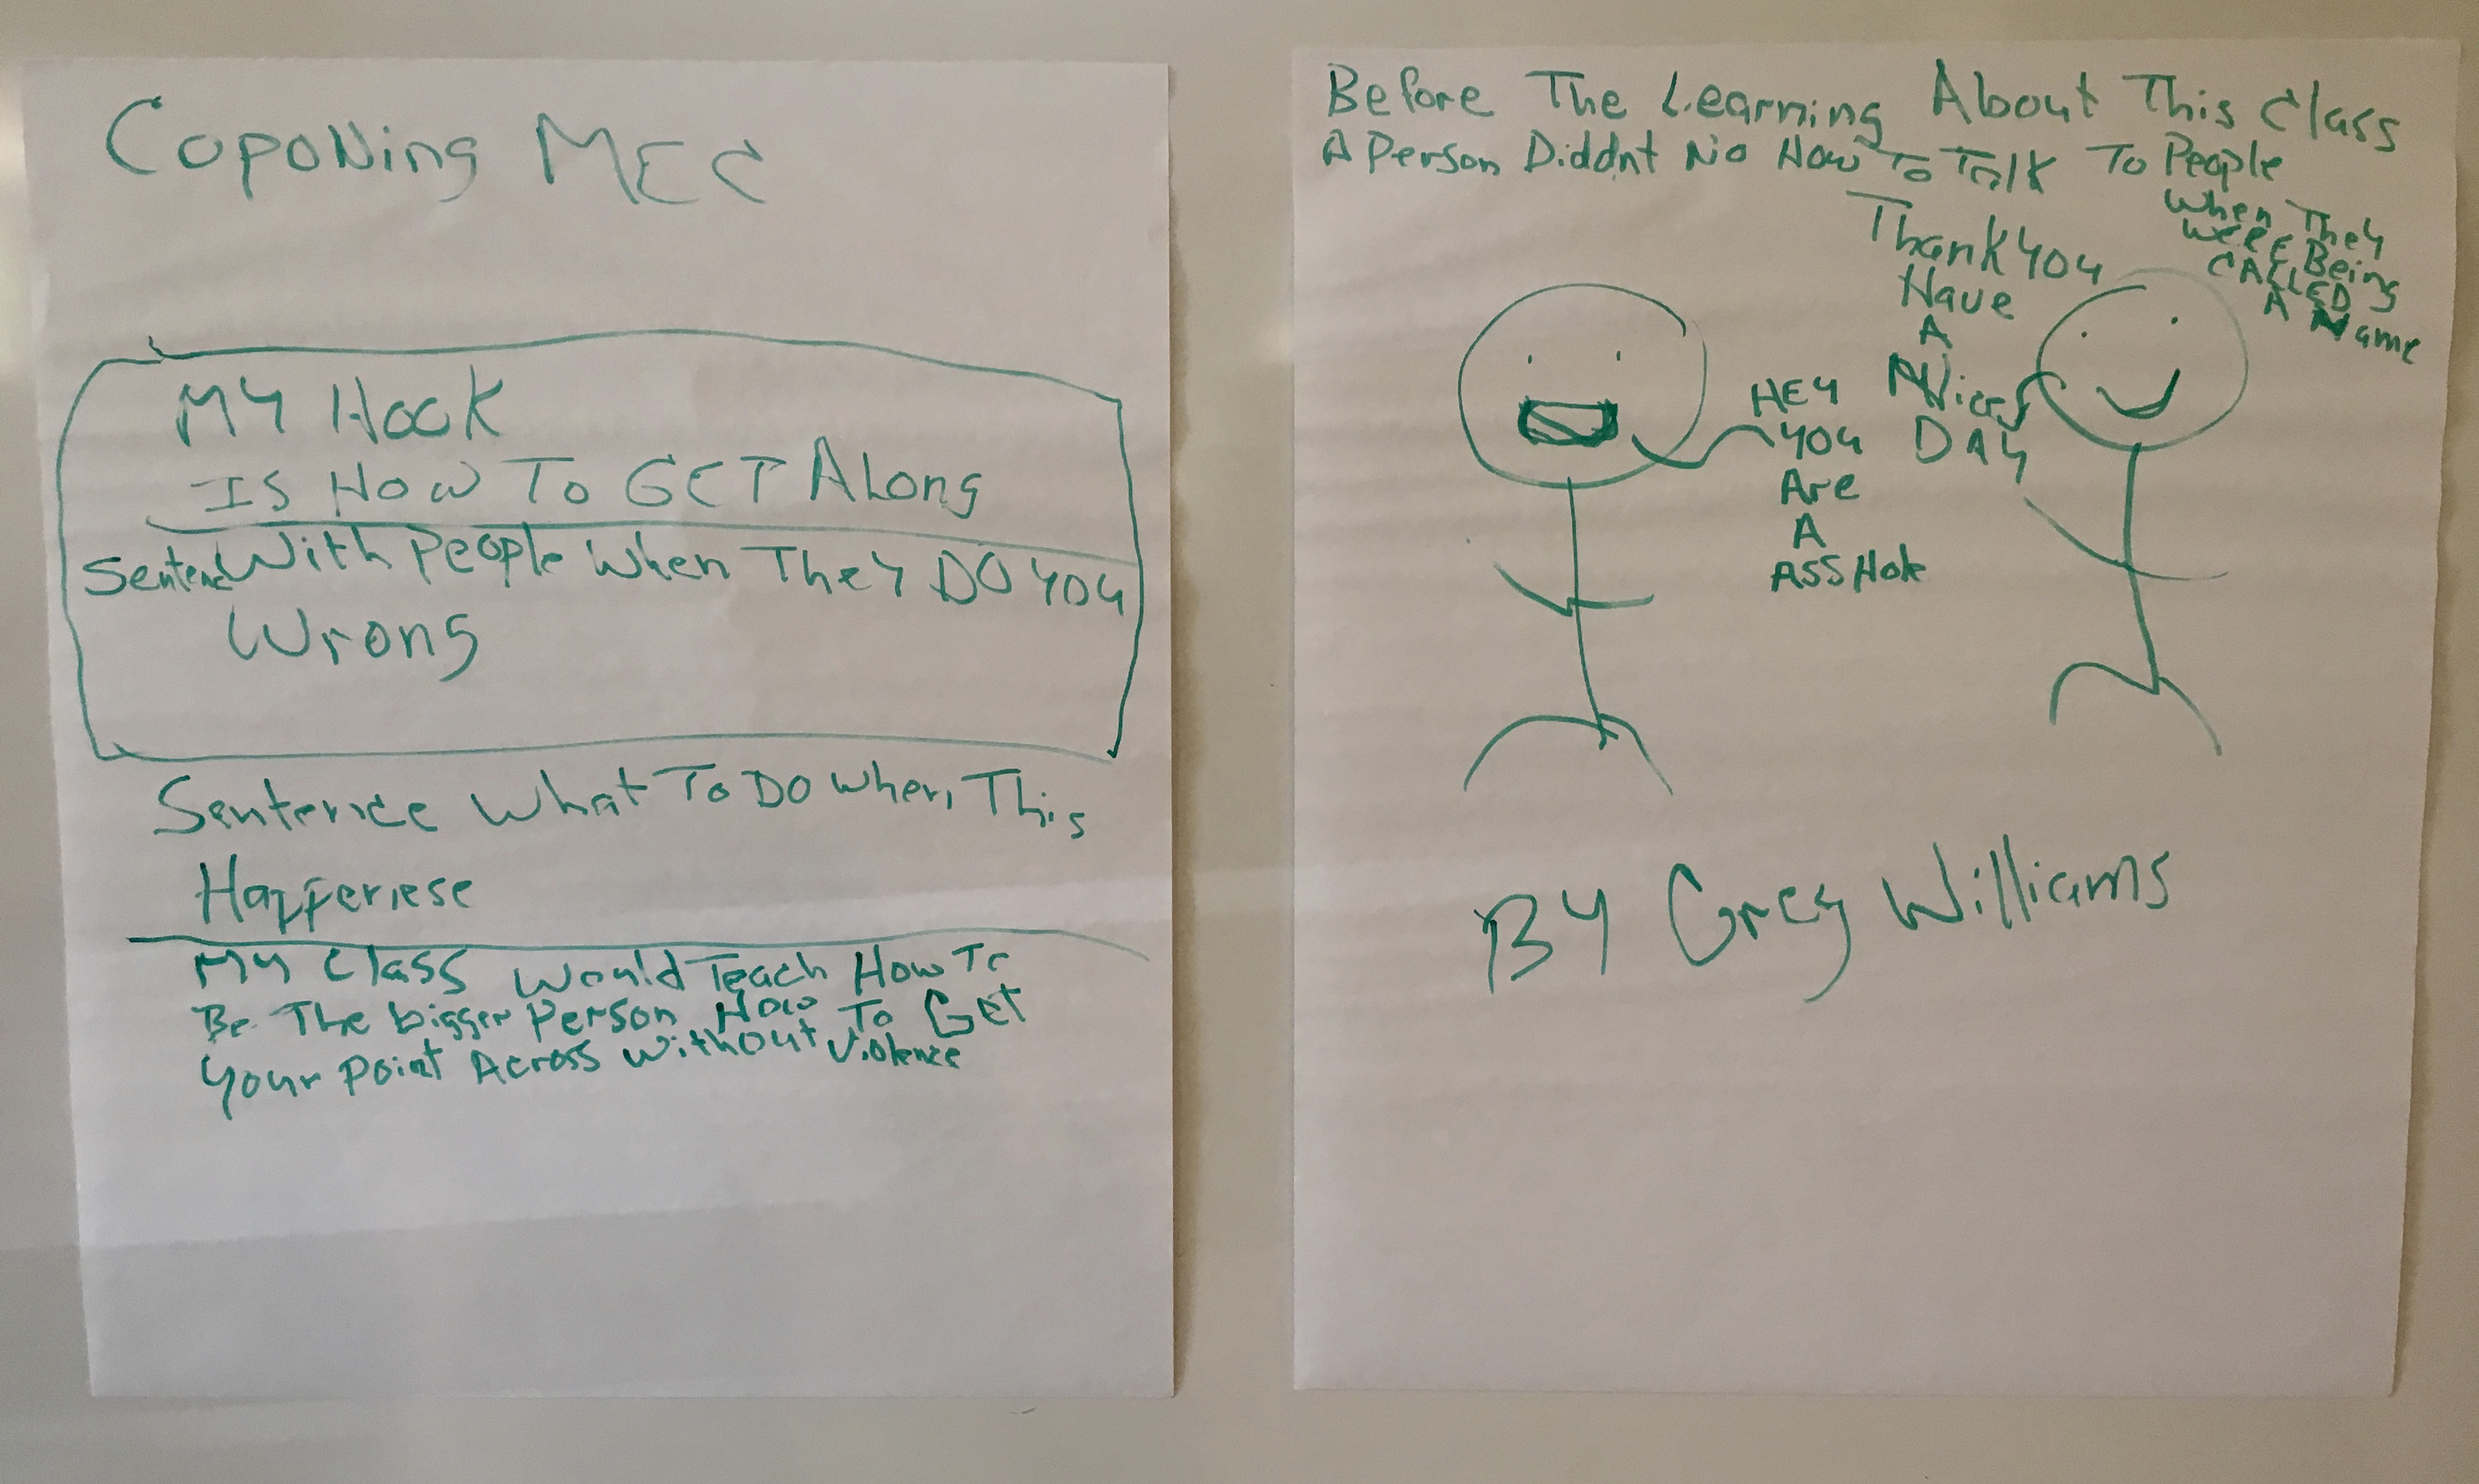 CopoNing MEC
MY Hook
Is How To GET ALong
Sentenc With People When They DO YOU
Wrong
Sentence What To DO when This
Happenese
My Class Would Teach How To
Be The bigger Person How To Get
Your Point Across without Violence
Before The Learning About This Class
A Person Diddnt No How To Talk To People
When They
WERE Being
CALLED
A Name
Thank You
Have
A
Nice
DAY
HEY
YOU
Are
A
ASSHole
BY Greg Williams